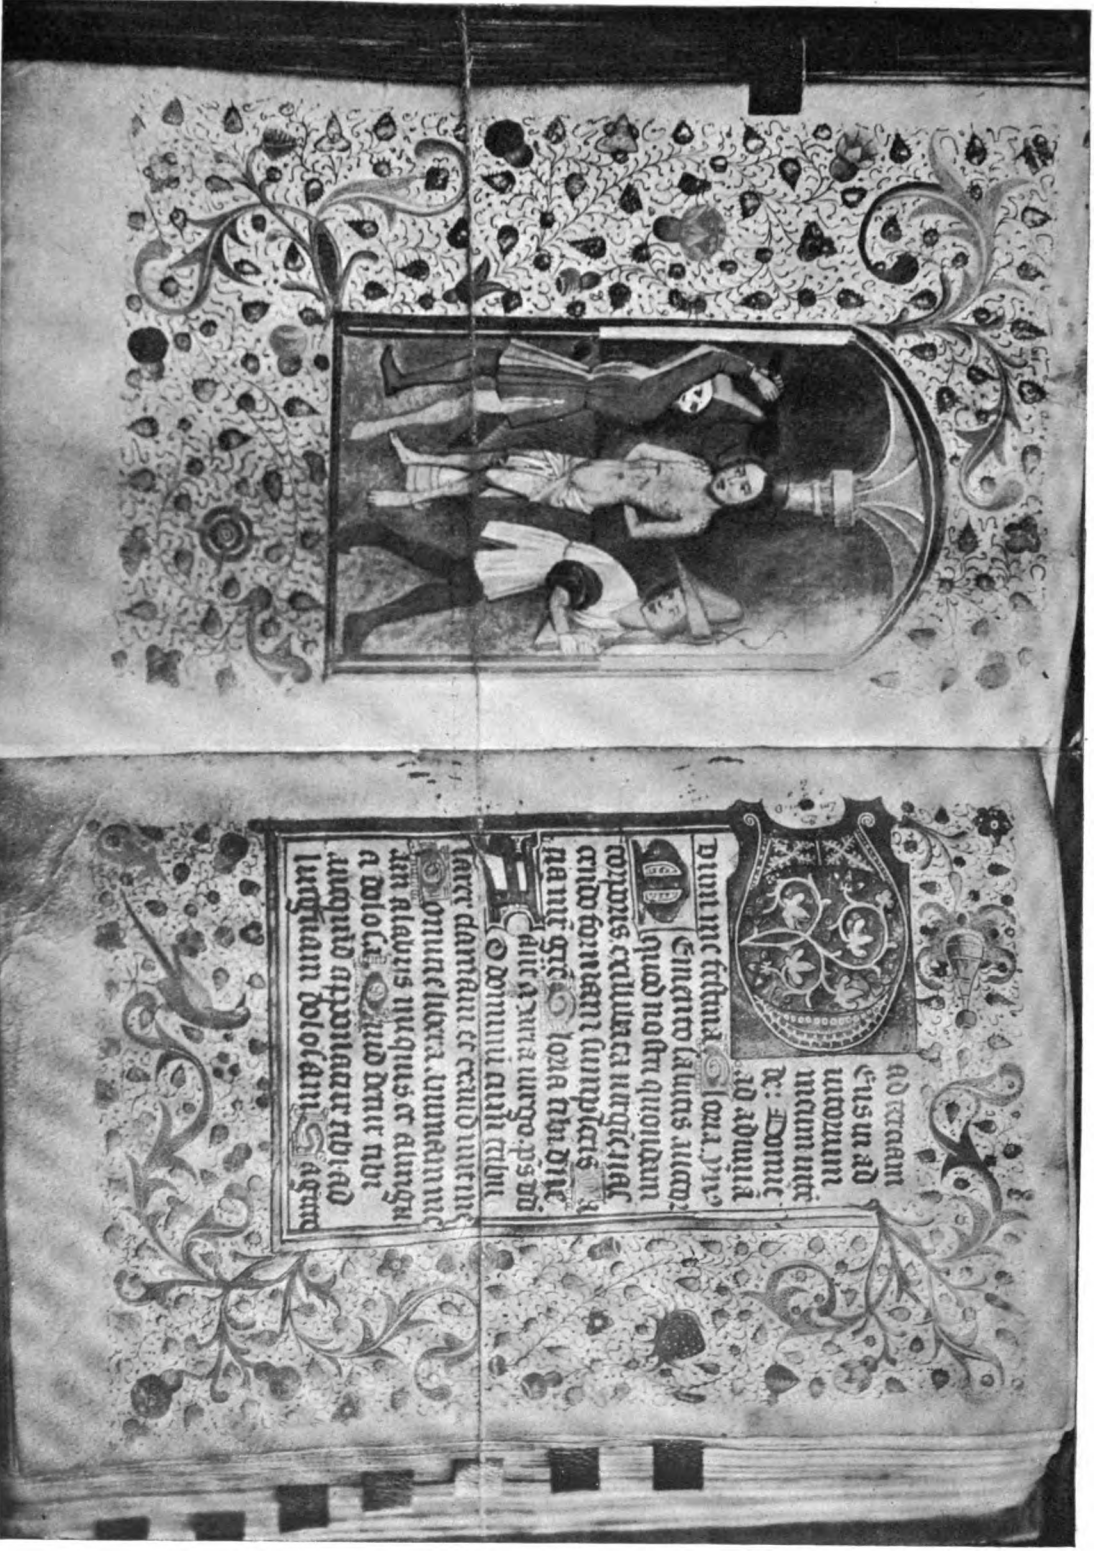 Ad terciam
Eus in ad
iutorium
meum inten
de: Domine
ad adiuuā
dum me festina Gloria pri
Emento salutis auctor
quod nostri quondam
corporis ex illibata uirgine nas
cendo formam sumpseris
Gloria tibi dñe
maria uirgo. ps ad
D dominū cū tribu
larer clamaui et exaudiuit me
Domine libera animam meā
a labiis iniquis et a lingua
a dolosa Quid detur tibi
aut quid apponatur tibi ad
linguam dolosam Sagitte